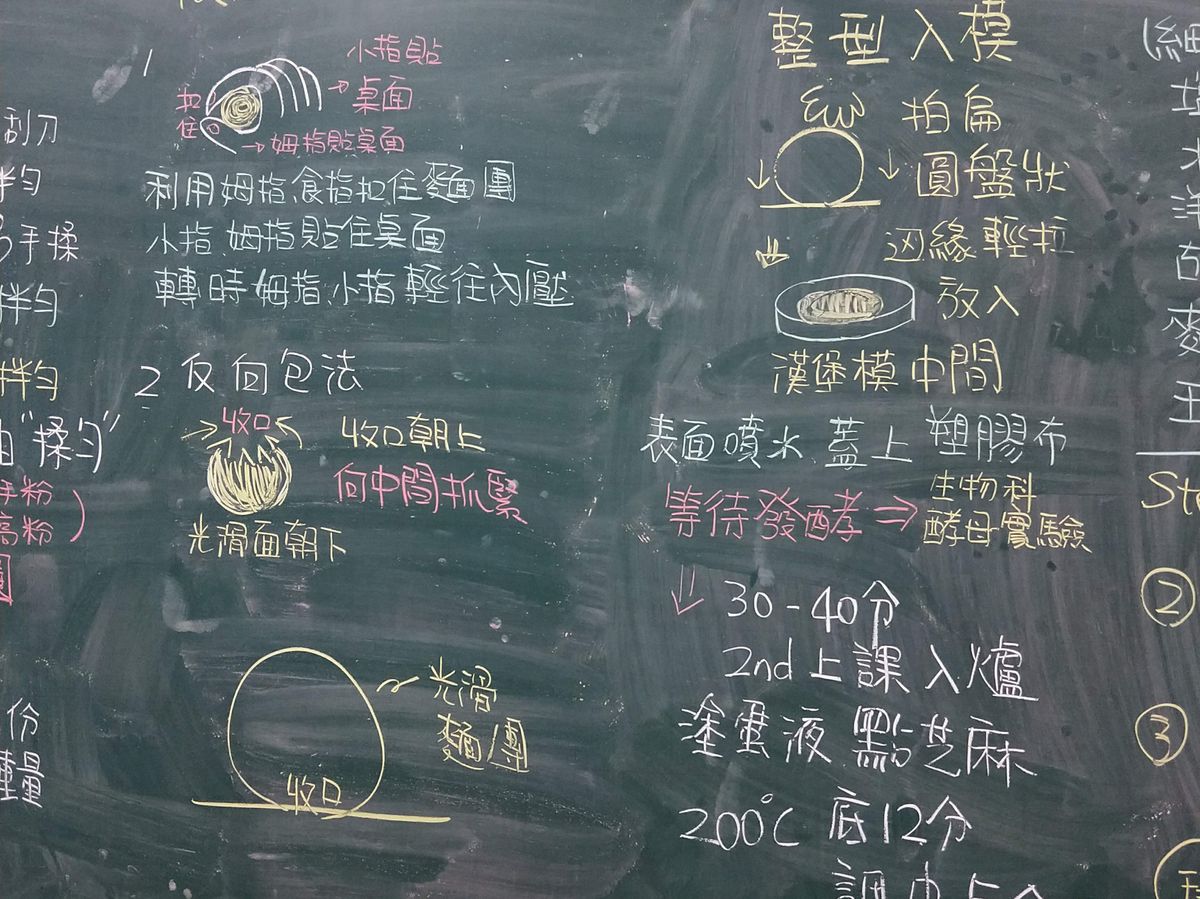 刮刀
拌勻
手揉
拌勻
拌勻
"揉勻"
手粉
高粉)
份
量
1
小指貼
桌面
扣住
姆指貼桌面
利用姆指、食指扣住麵團
小指、姆指貼住桌面
轉時姆指、小指輕往內壓
2 反向包法
收口
收口朝上
向中間抓緊
光滑面朝下
光滑
麵團
收口
整型入模
拍扁
圓盤狀
边緣輕拉
放入
漢堡模中間
表面噴水、蓋上塑膠布
等待發酵⇒生物科
酵母實驗
30-40分
2nd上課入爐
塗蛋液、點芝麻
200°C 底12分
(細
王
St
②
③